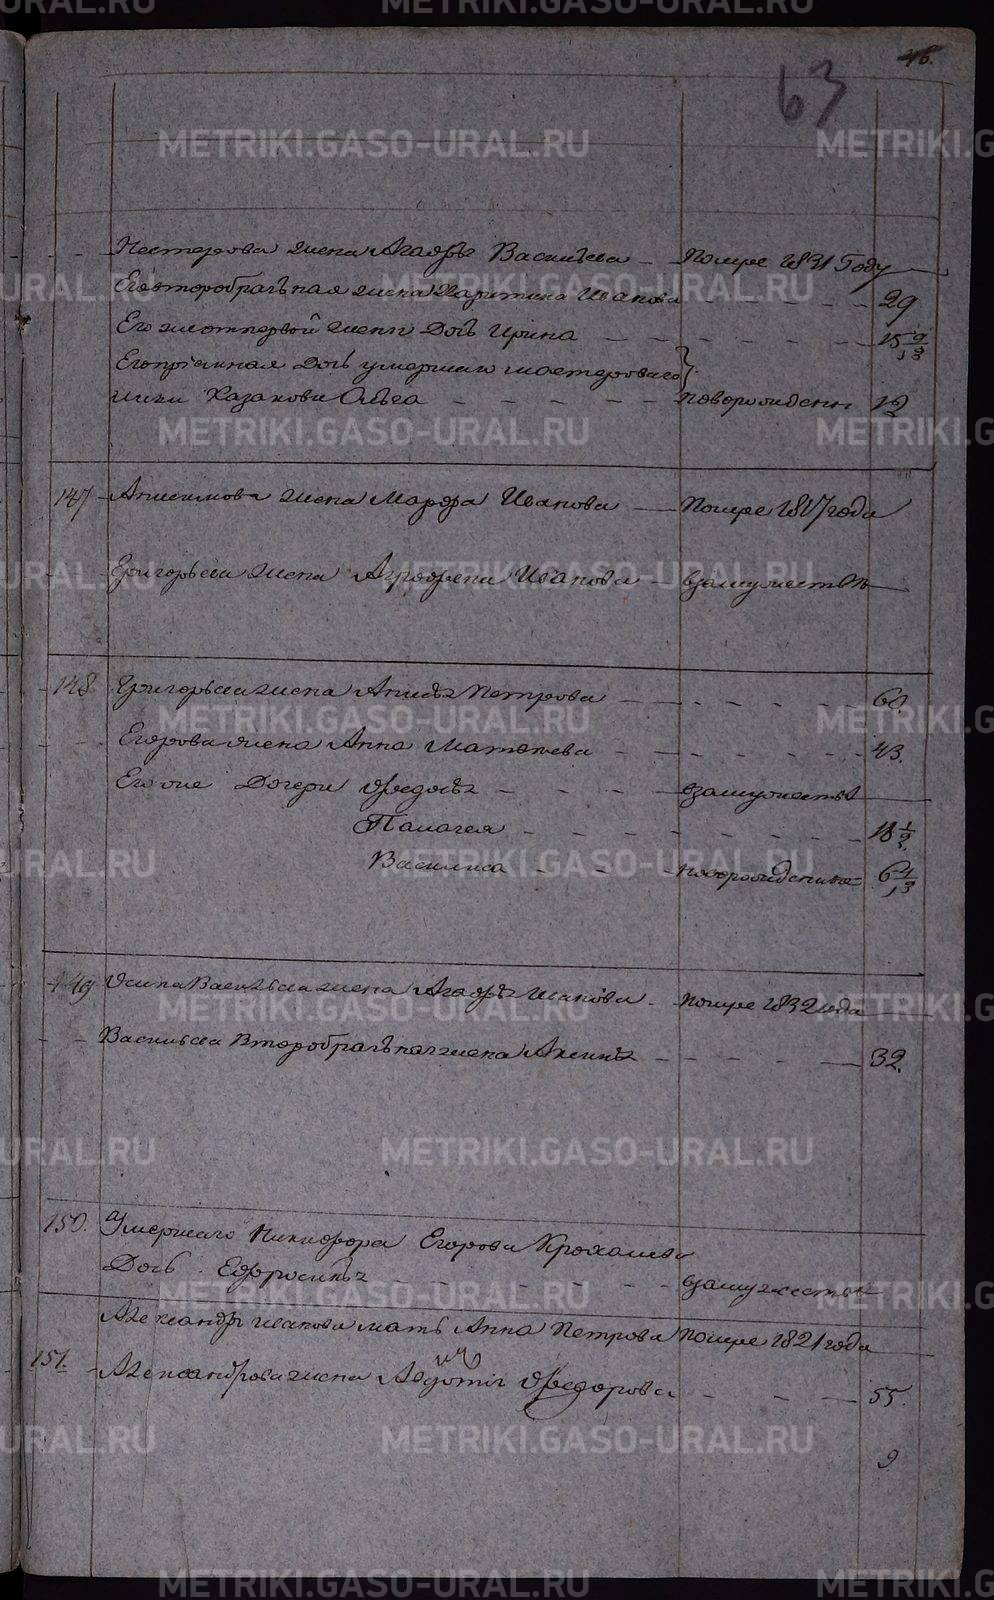 46.
63
Нестерова жена Агафья Васильева — Помере 1831 Году
Его второбрачьная жена Харитина Иванова — 29
Его же от первой жены Дочь Ирина — 15
Его приемная Дочь умершаго мастероваго
Казакова Ольга — новорожден 12
147 Анисимова жена Марфа Иванова — Помре 1817 года
Григорьева жена Аграфена Иванова — взамужестве
148. Григорьева жена Анисья Петрова — 60.
Егорова жена Анна Матвеева — 43.
Его же Дочери Федосья — взамужестве
Палагея — 18 1/2.
Василиса — новорожденна 6 4/13
149 Осипа Васильева жена Агафья Иванова — помре 1832 года
Васильева Второбрачьная жена Аксинья — 32.
150. Умершаго Никифора Егорова Крохалева
Дочь Ефросинья — взамужестве
Александра Иванова мать Анна Петрова помре 1821 года
151. Александрова жена Авдотья Федорова — 55.
9
METRIKI.GASO-URAL.RU